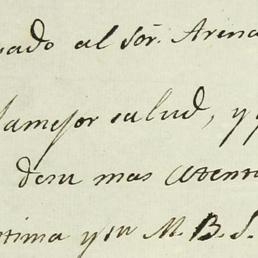 ado al Sor. Arena
lamejor salud, y
desu mas atent
tima y su M. B. S.